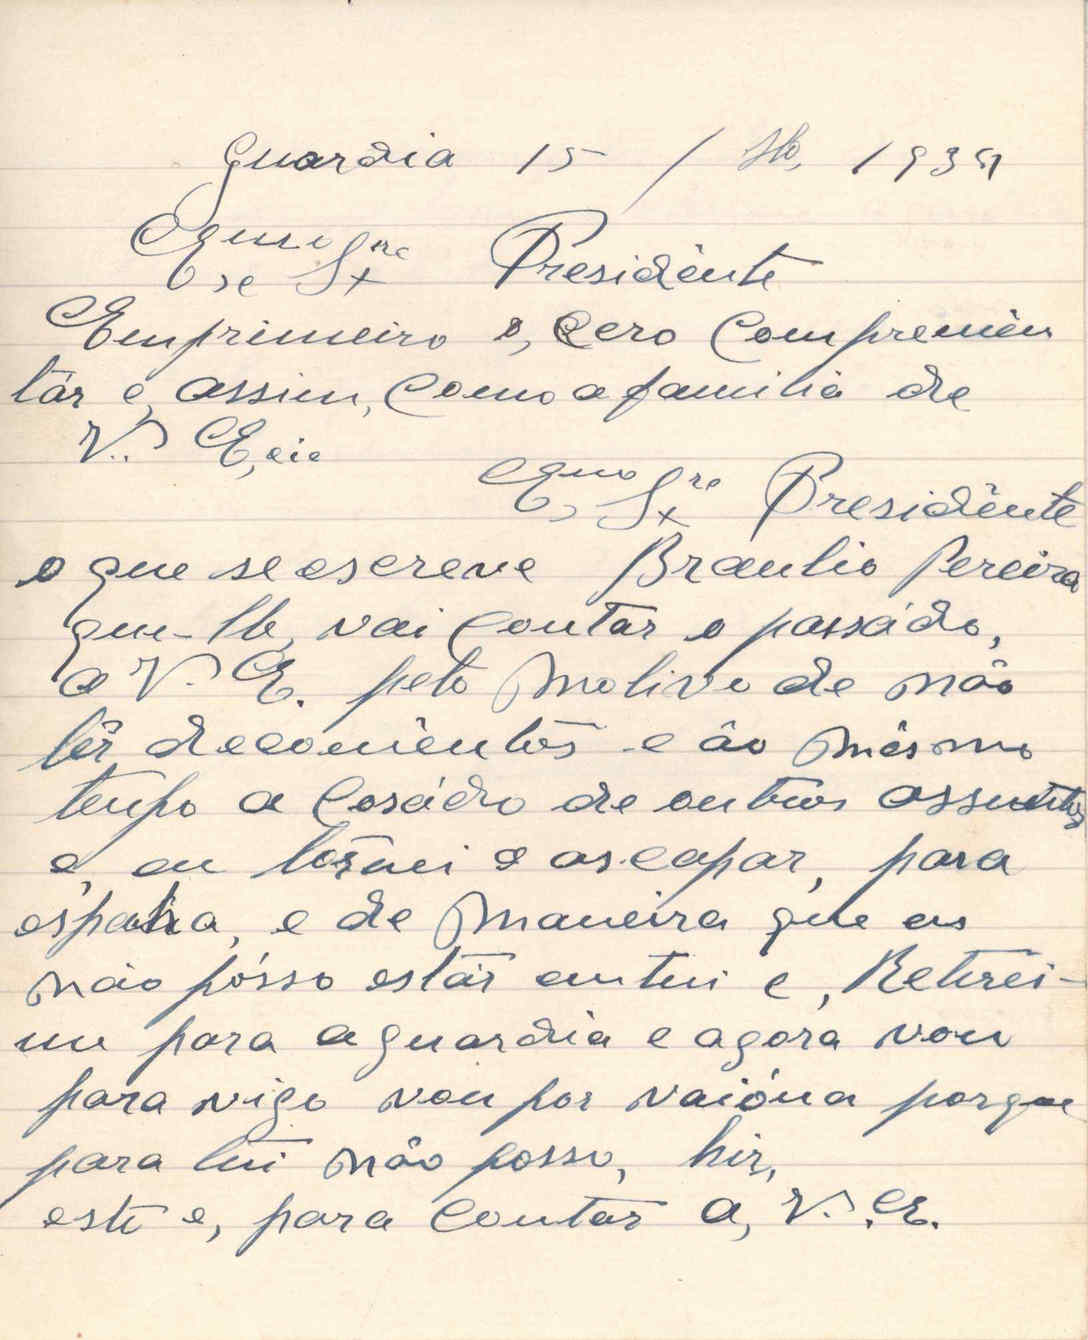 guardia 15 / / 193
Exmo Snre Presidênte
Emprimeiro o, cero Compremên
tár e, assim, Como a familia de
V. E, cia
Exmo Snre Presidênte
o que se escreve Braulio Pereira
que-lhe, vai Contar o passádo,
a V. E. pelo Motivo de não
têr decomêntos e áo mêsmo
tenpo a Cosádro de outros assuntos
e, eu tornei a ascapar, para
espanha, e de Maneira que eu
não pósso estár em tui e, Retirei-
me para a guardia e agora vou
para vigo vou por vaióna porque
para tui não posso, hir,
este e, para Contar a, V. E.